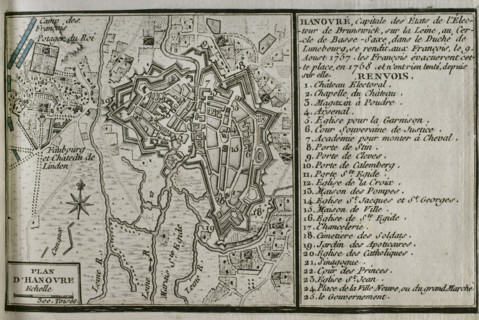 Camp des
François
Potager du Roi
Faubourg
et Château de
Linden
Leine R.
Leine R.
Marais Ste Egide
Leine R.
PLAN
D'HANOVRE
Echelle
300 Toises
HANOVRE, Capitale des Etats de l'Elec-
teur de Brunswick, sur la Leine, au Cer-
cle de Basse-Saxe, dans le Duché de
Lunebourg, se rendit aux François, le 9.
Aoust 1757. les François évacuerent cet-
te place, en 1758. et n'ont rien tenté, depuis
sur elle.
RENVOIS.
1. Château Electoral.
2. Chapelle du Château.
3. Magazin à Poudre.
4. Arsenal.
5. Eglise pour la Garnison.
6. Cour Souveraine de Justice.
7. Académie pour monter à Cheval.
8. Porte de Stin.
9. Porte de Cleves.
10. Porte de Calemberg.
11. Porte Ste Egide.
12. Eglise de la Croix.
13. Maison des Pompes.
14. Eglise St. Jacques et St. Georges.
15. Maison de Ville.
16. Eglise de Ste Egide.
17. Chancelerie.
18. Cimetiere des Soldats.
19. Jardin des Apoticaires.
20. Eglise des Catholiques.
21. Sinagogue.
22. Cour des Princes.
23. Eglise St. Jean.
24. Place de la Ville Neuve, ou du grand Marché.
25. le Gouvernement.